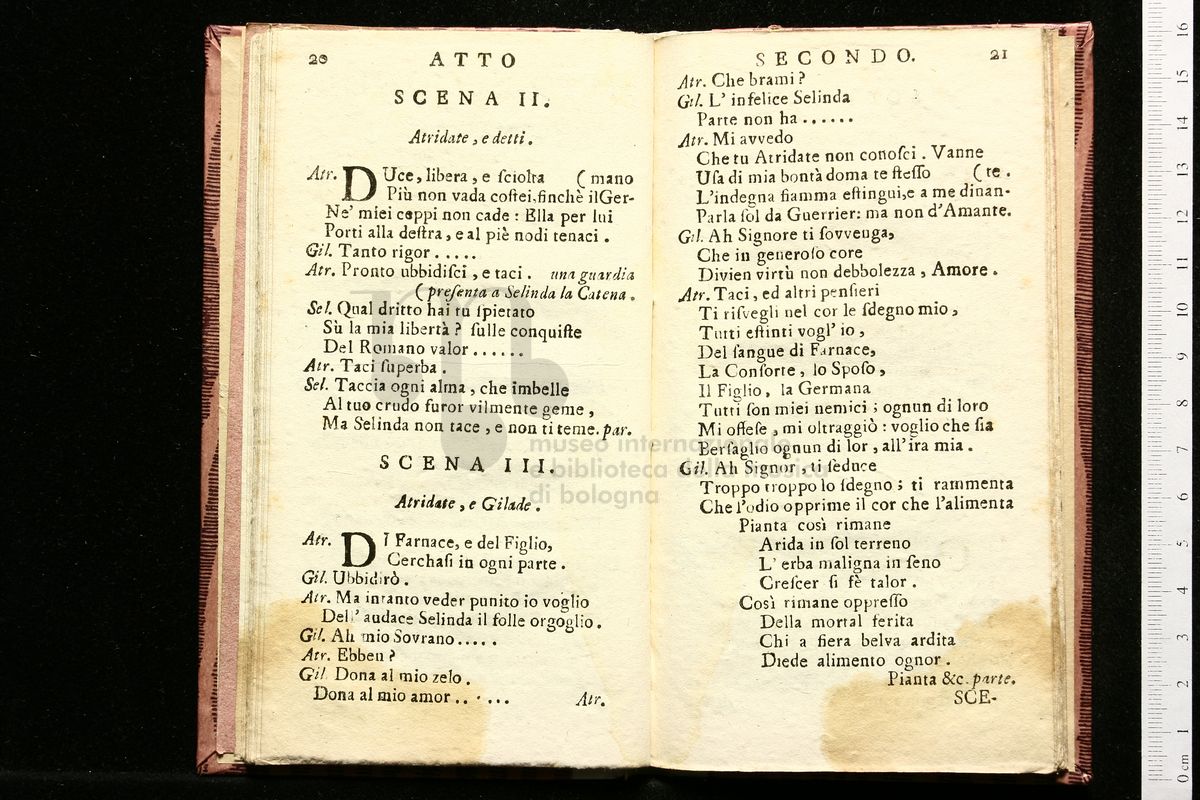 20 ATTO
SCENA II.
Atridate, e detti.
Atr. DUce, libera, e ſciolta ( mano
Più non vada coſtei, finchè il Ger-
Ne' miei ceppi non cade : Ella per lui
Porti alla deſtra, e al piè nodi tenaci.
Gil. Tanto rigor.....
Atr. Pronto ubbidiſci, e taci. una guardia
( preſenta a Selinda la Catena.
Sel. Qual dritto hai tu ſpietato
Sù la mia libertà ? ſulle conquiſte
Del Romano valor......
Atr. Taci ſuperba.
Sel. Taccia ogni alma, che imbelle
Al tuo crudo furor vilmente geme,
Ma Selinda non tace, e non ti teme. par.
SCENA III.
Atridate, e Gilade.
Atr. DI Farnace, e del Figlio,
Cerchaſi in ogni parte.
Gil. Ubbidirò.
Atr. Ma intanto veder punito io voglio
Dell' audace Selinda il folle orgoglio.
Gil. Ah mio Sovrano.....
Atr. Ebben ?
Gil. Dona al mio zelo.
Dona al mio amor......
Atr.
SECONDO. 21
Atr. Che brami ?
Gil. L' infelice Selinda
Parte non ha......
Atr. Mi avvedo
Che tu Atridate non conoſci. Vanne
Uſa di mia bontà doma te ſteſſo ( te.
L'indegna fiamma eſtingui, e a me dinan-
Parla ſol da Guerrier: ma non d'Amante.
Gil. Ah Signore ti ſovvenga,
Che in generoſo core
Divien virtù non debbolezza, Amore.
Atr. Taci, ed altri penſieri
Ti riſvegli nel cor le ſdegno mio,
Tutti eſtinti vogl' io,
Del ſangue di Farnace,
La Conſorte, lo Spoſo,
Il Figlio, la Germana
Tutti ſon miei nemici ; ognun di loro
Mi offeſe, mi oltraggiò : voglio che ſia
Berſaglio ognun di lor, all' ira mia.
Gil. Ah Signor, ti ſeduce
Troppo troppo lo ſdegno ; ti rammenta
Che l'odio opprime il cor che l'alimenta
Pianta così rimane
Arida in ſol terreno
L' erba maligna in ſeno
Creſcer ſi fè talor.
Così rimane oppreſſo
Della mortal ferita
Chi a fiera belva ardita
Diede alimento ognor.
Pianta &c. parte.
SCE-
museo internazionale
e biblioteca della musica
di bologna
0 cm 1 2 3 4 5 6 7 8 9 10 11 12 13 14 15 16